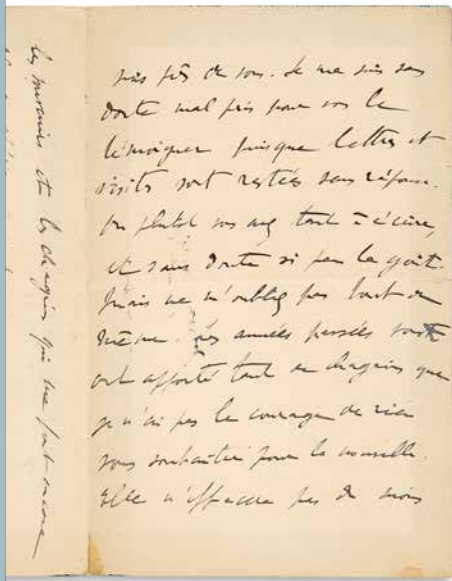 suis près de vous. Je me suis sans
doute mal pris pour vous le
témoigner puisque lettres et
visites sont restées sans réponse.
Ou plutôt vous avez tant à écrire,
et sans doute si peu le goût.
Mais ne m'oubliez pas tout de
même. Les années passées
ont apporté tant de chagrins que
je n'ai pas le courage de rien
vous souhaiter pour la nouvelle.
Elle n'effacera pas du moins
les souvenirs et les chagrins qui me font encore